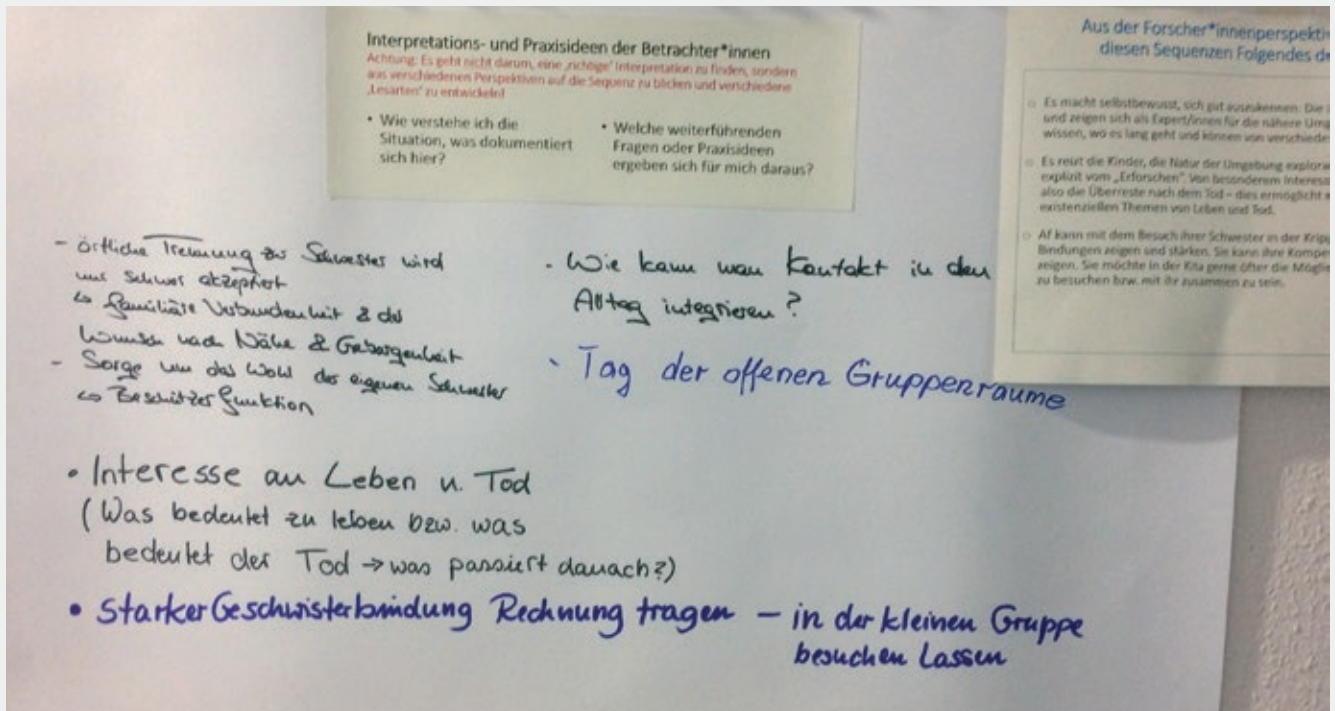 Interpretations- und Praxisideen der Betrachter*innen
Achtung: Es geht nicht darum, eine ‚richtige' Interpretation zu finden, sondern
aus verschiedenen Perspektiven auf die Sequenz zu blicken und verschiedene
‚Lesarten' zu entwickeln!
• Wie verstehe ich die
Situation, was dokumentiert
sich hier?
• Welche weiterführenden
Fragen oder Praxisideen
ergeben sich für mich daraus?
Aus der Forscher*innenperspekti
diesen Sequenzen Folgendes
Es macht selbstbewusst, sich gut auszukennen. Die
und zeigen sich als Expert/innen für die nähere Umg
wissen, wo es lang geht und können von verschiede
Es reizt die Kinder, die Natur der Umgebung explorie
explizit vom „Erforschen". Von besonderem Interess
also die Überreste nach dem Tod – dies ermöglicht
existenziellen Themen von Leben und Tod.
Af kann mit dem Besuch ihrer Schwester in der Kripp
Bindungen zeigen und stärken. Sie kann ihre Kompe
zeigen. Sie möchte in der Kita gerne öfter die Möglic
zu besuchen bzw. mit ihr zusammen zu sein.
- örtliche Trennung zur Schwester wird
nur schwer akzeptiert
↳ familiäre Verbundenheit & der
Wunsch nach Nähe & Geborgenheit
- Sorge um das Wohl der eigenen Schwester
↳ Beschützerfunktion
- Wie kann man Kontakt in den
Alltag integrieren?
- Tag der offenen Gruppenräume
• Interesse an Leben u. Tod
(Was bedeutet zu leben bzw. was
bedeutet der Tod → was passiert danach?)
• Starker Geschwisterbindung Rechnung tragen – in der kleinen Gruppe
besuchen lassen